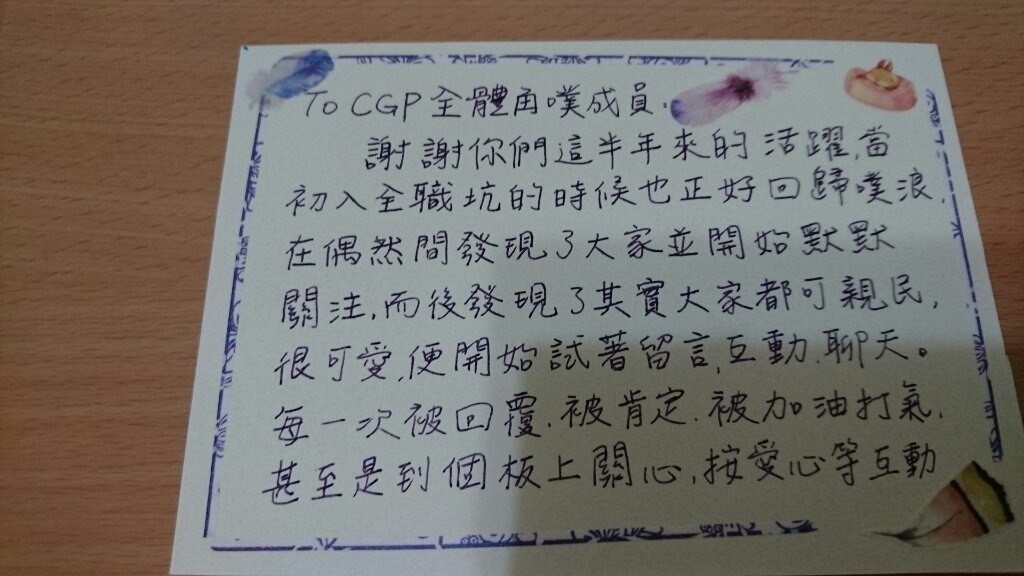 To CGP 全體角噗成員：
謝謝你們這半年來的活躍,當
初入全職坑的時候也正好回歸噗浪,
在偶然間發現了大家並開始默默
關注,而後發現了其實大家都可親民,
很可愛,便開始試著留言,互動,聊天。
每一次被回覆、被肯定、被加油打氣,
甚至是到個板上關心,按愛心等互動